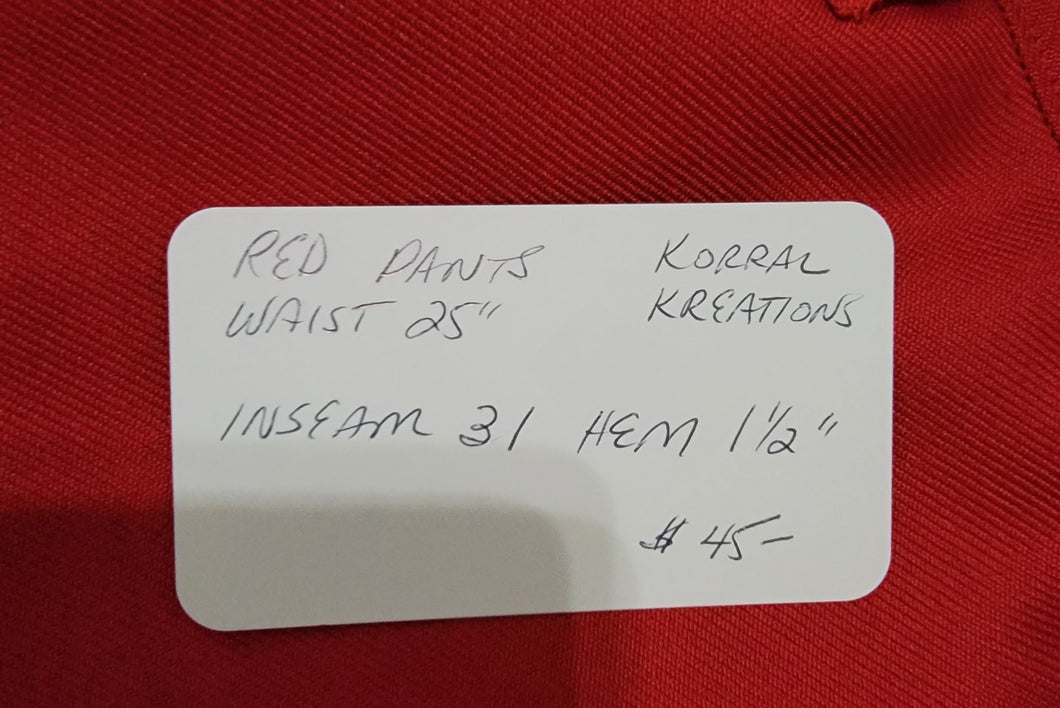 RED PANTS
WAIST 25"
KORRAL
KREATIONS
INSEAM 31 HEM 1 1/2"
$ 45-